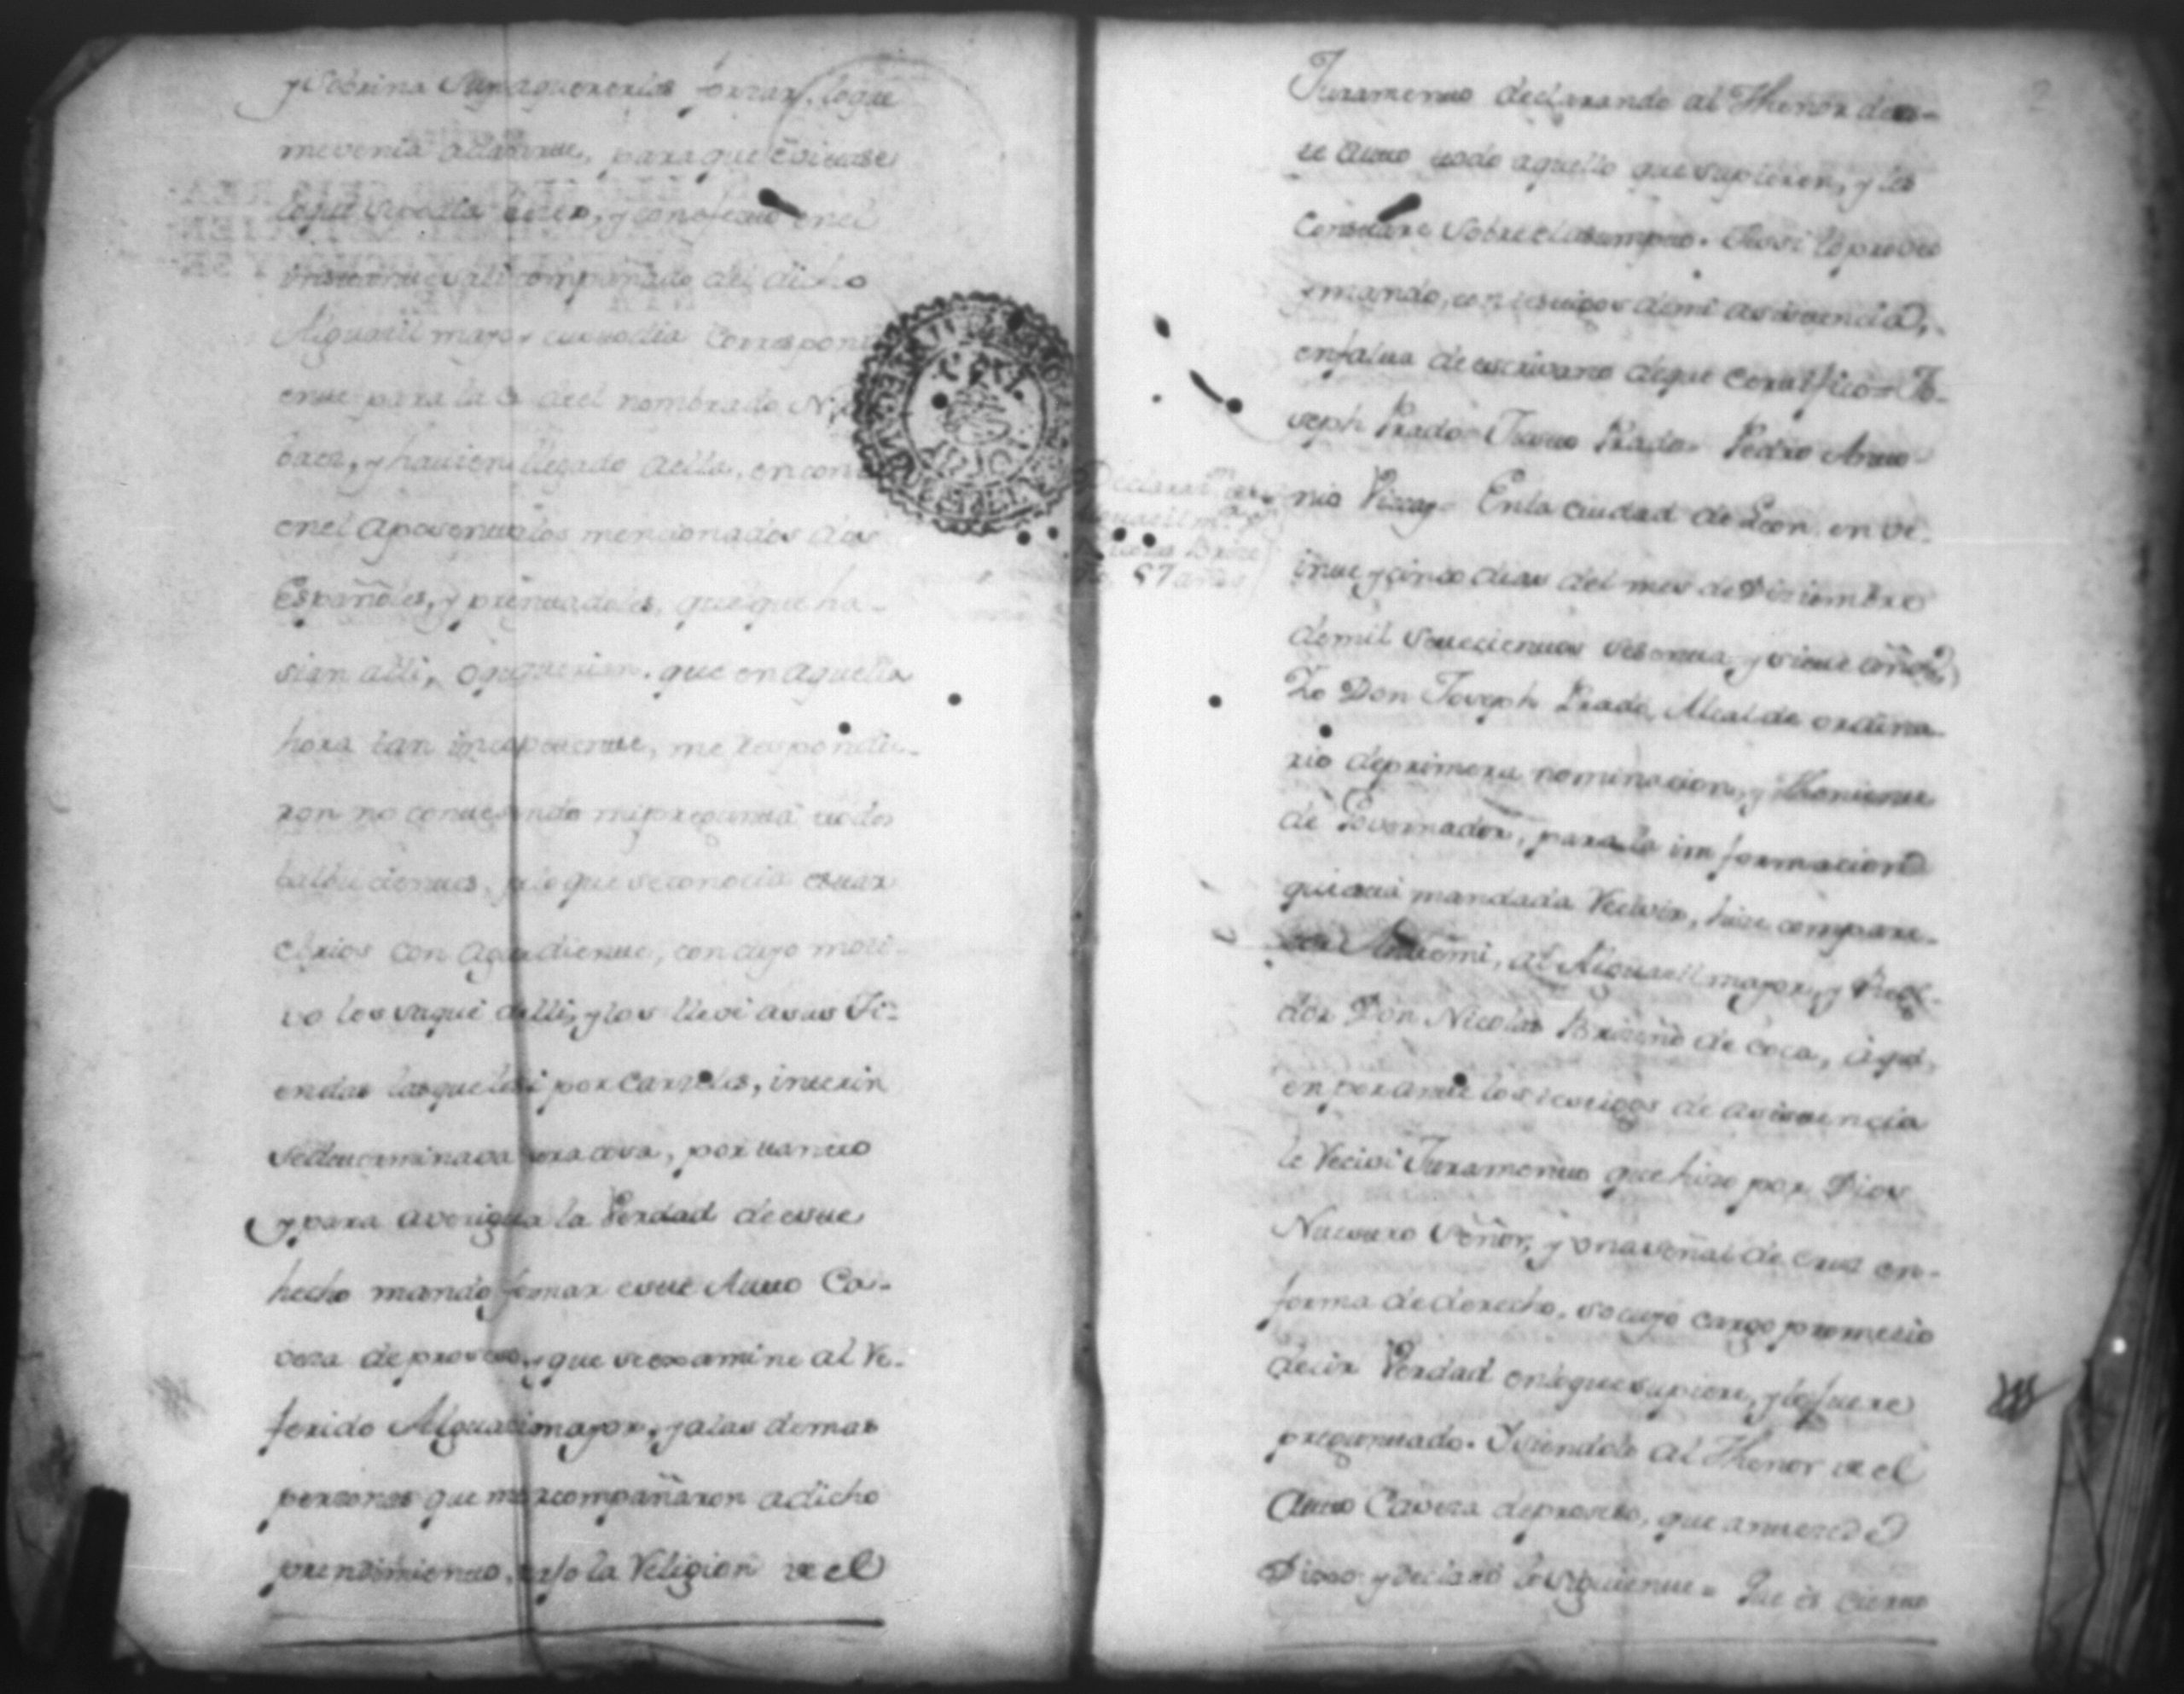 y Sobrina Suya quererlas forzar, loque
mevenia adarme, para que evitase
loque sucedia
instante sali compañado del dicho
Alguacil mayor custodia Correspondi
ente para la C. del nombrado
baez, y havien llegado aella, encontre
enel aposento alos mencionados dos
Españoles, y preguntadoles, que que ha-
sian alli, o que querian. que en aquella
hora tan incompetente, me respondie-
ron no contestando mi pregunta todos
balbucientes, por lo que se conocia estar
ebrios con aguardiente, con cuyo moti-
vo los saque de alli, y los lleve asus Ti-
endas lasqueles di por carceles, interin
sedeterminava otra cosa, por tanto
y para averiguar la Verdad de este
hecho mando formar este Auto Ca-
veza de proseso, y que se examine al Re-
ferido Alguacil mayor, y alas demas
personas que me acompañaron a dicho
prendimiento, bajo la Religion de el
Juramento declarando al Thenor de es-
te auto todo aquello que supieren, y les
Constare sobre el asumpto. Assi lo proveo
y mando, con testigos de mi asistencia,
enfalta de escrivano deque Certifico = Jo-
seph Prado = Justo Prado = Pedro Anto-
nio Viscay = Enla ciudad de Leon en ve-
inte, y cinco dias del mes de Diciembre
demil setecientos sesenta, y siete años,
Yo Don Joseph Prado, Alcalde ordina-
rio deprimera nominacion, y Theniente
de Governador, para la informacion
qui está mandada Recivir, hice compare-
cer Antemi, al Alguacil mayor, y Regi-
dor Don Nicolas Brizeño de Coca, aqui
en por ante los testigos de asistencia
le Recivi Juramento que hizo por Dios
Nuestro Señor, y una señal de Cruz en-
forma de derecho, so cuyo cargo prometio
decir Verdad enloque supiere, y le fuere
preguntado. Y siendole al Thenor de el
Auto Caveza deproseso, que antecede
Dixo y declaro lo siguiente = Que es cierto
57 años